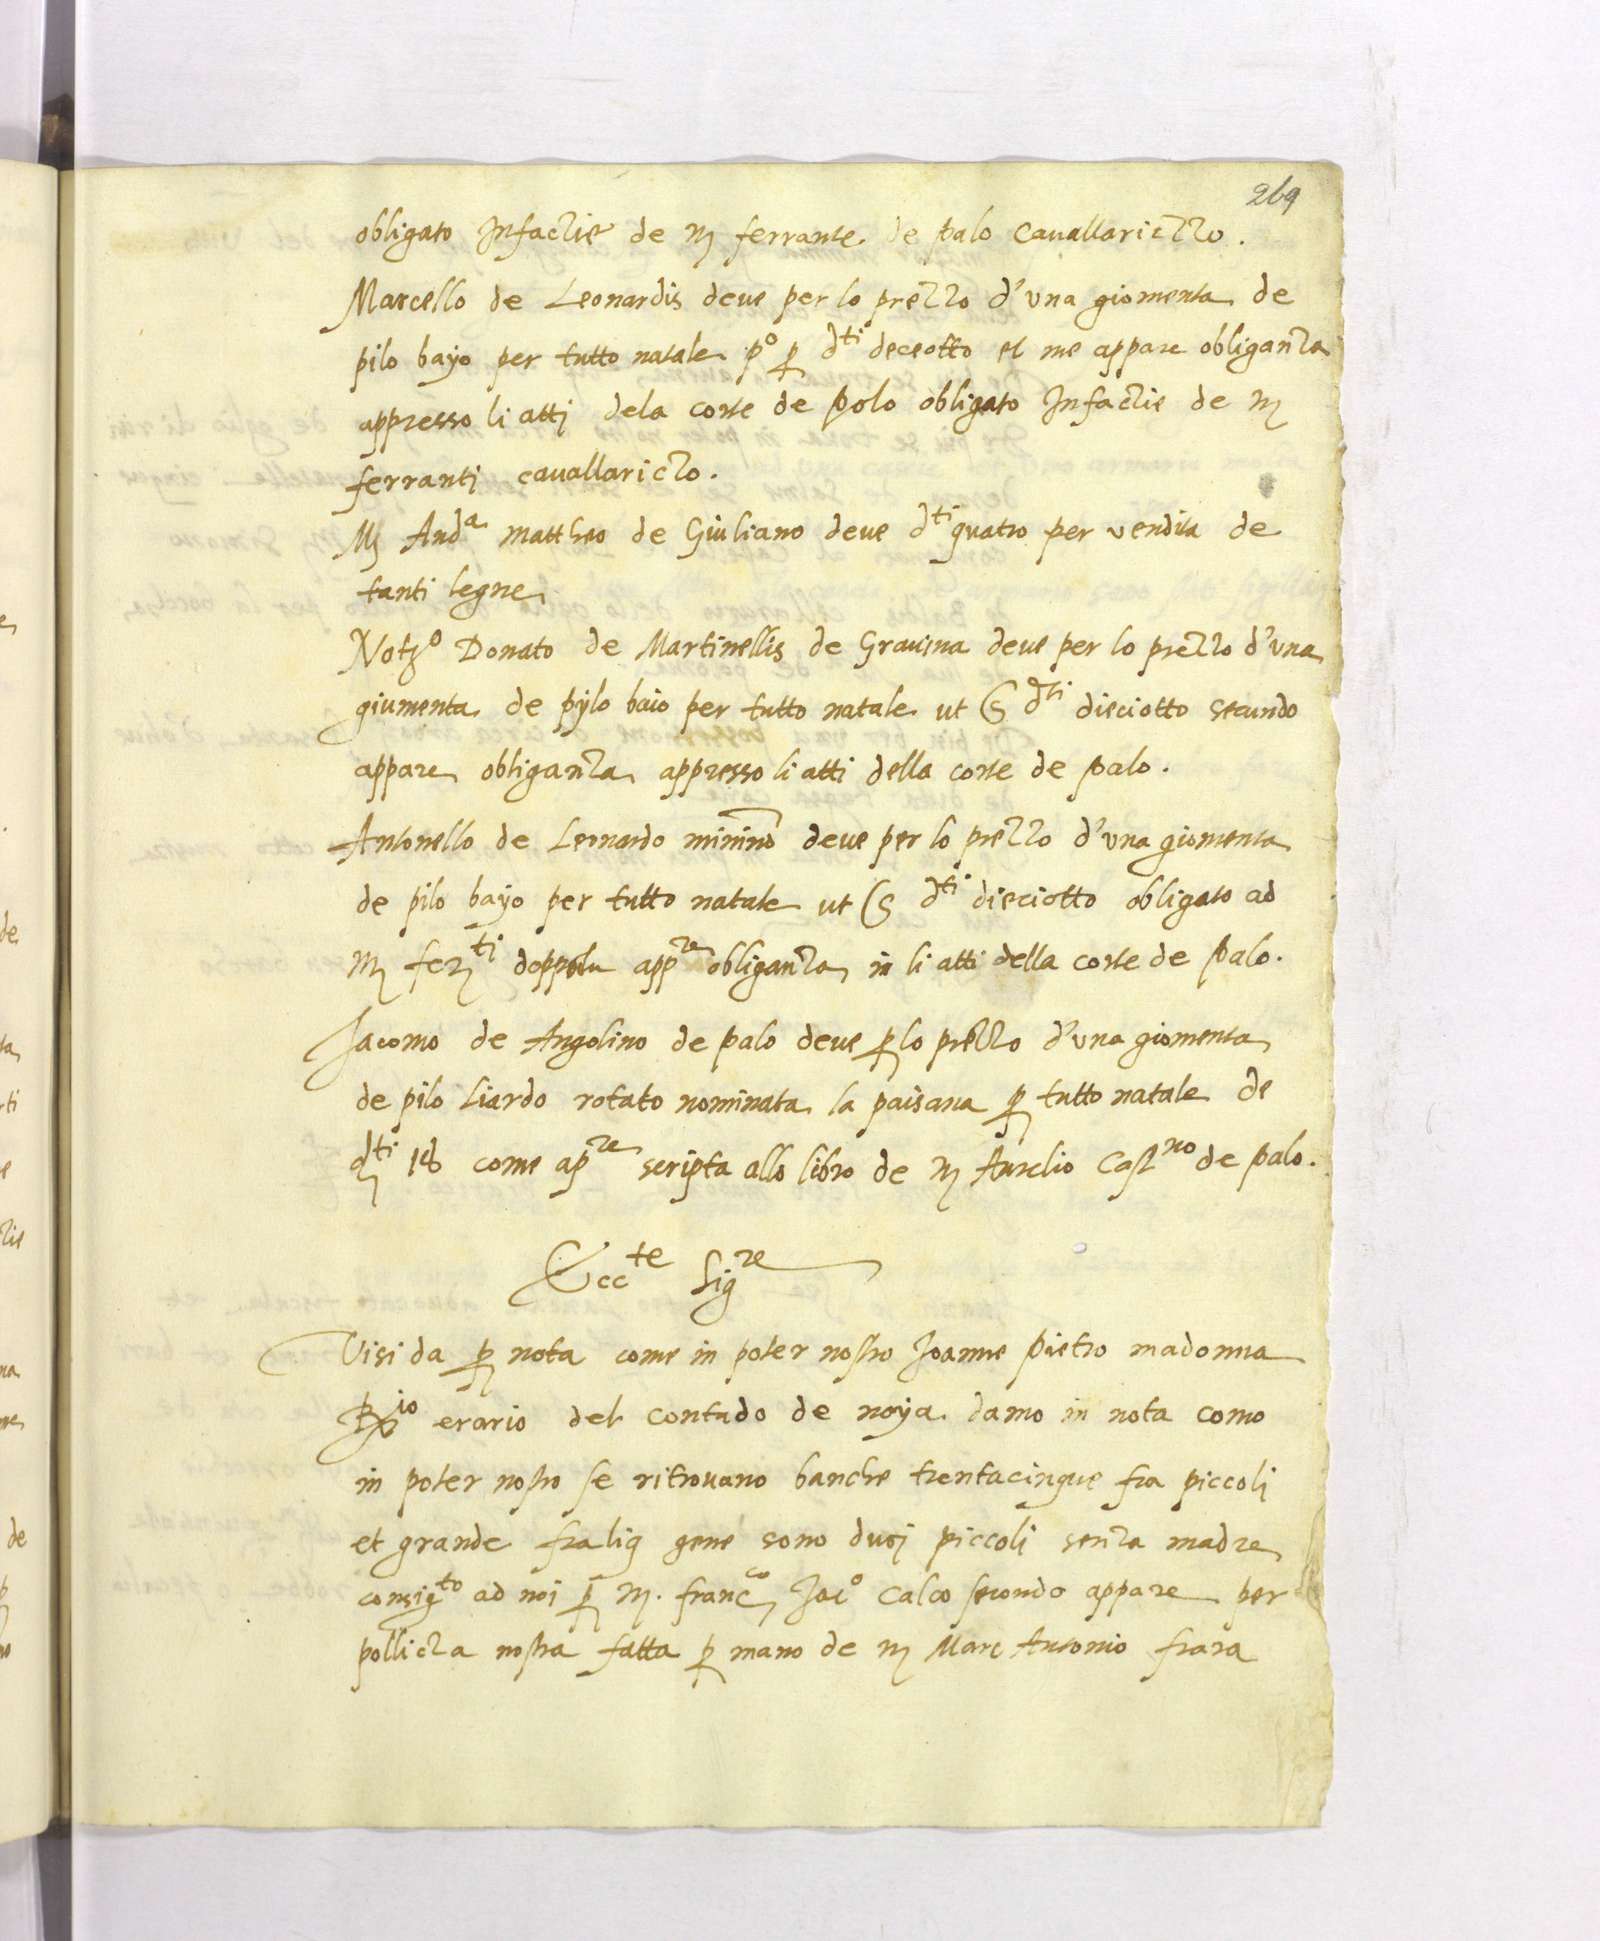 269
obligato Infaczie de m ferrante de palo Cauallariczzo.
Marcello de Leonardis deue per lo prezzo d'una giomenta de
pilo bayo per tutto natale po p dti deceotto et me appare obliganza
appresso li attj dela corte de palo obligato Infaczie de m
ferrantj cauallariczo.
Ms Anda mattheo de Giuliano deue dti quatro per vendita de
tanti legne
Noto Donato de Martinellis de Grauina deue per lo prezzo d'una
giumenta de pylo baio per tutto natale ut s dti dieciotto secundo
appare obliganza appresso li atti della corte de palo.
Antonello de Leonardo minino deue per lo prezzo d'una giomenta
de pilo bayo per tutto natale ut s dti dieciotto obligato ad
m ferti appre obliganza in li atti della corte de palo.
Iacomo de Angolino de palo deue p lo prezzo d'una giomenta
de pilo liardo rotato nominata la paisana p tutto natale de
dti 18 come apre scripta allo libro de m Aurelio Castno de palo.
Eccte Sigre
Vi si da p nota come in poter nostro Joanne pietro madonna
erario del contado de noya damo in nota como
in poter nostro se ritrouano banche trentacinque fra piccoli
et grande fra li q gene sono duoj piccoli senza madre
consigto ad noi p m. francco Jaco Calco secondo appare per
pollicza nostra fatta p mano de m Marc Antonio frara